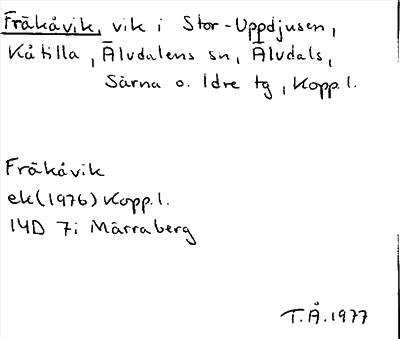 Fräkåvik, vik i Stor-Uppdjusen,
Kåtilla, Älvdalens sn, Älvdals,
Särna o. Idre tg, Kopp.l.
Fräkåvik
ek(1976) Kopp.l.
14D 7i Märraberg
T.Å.1977